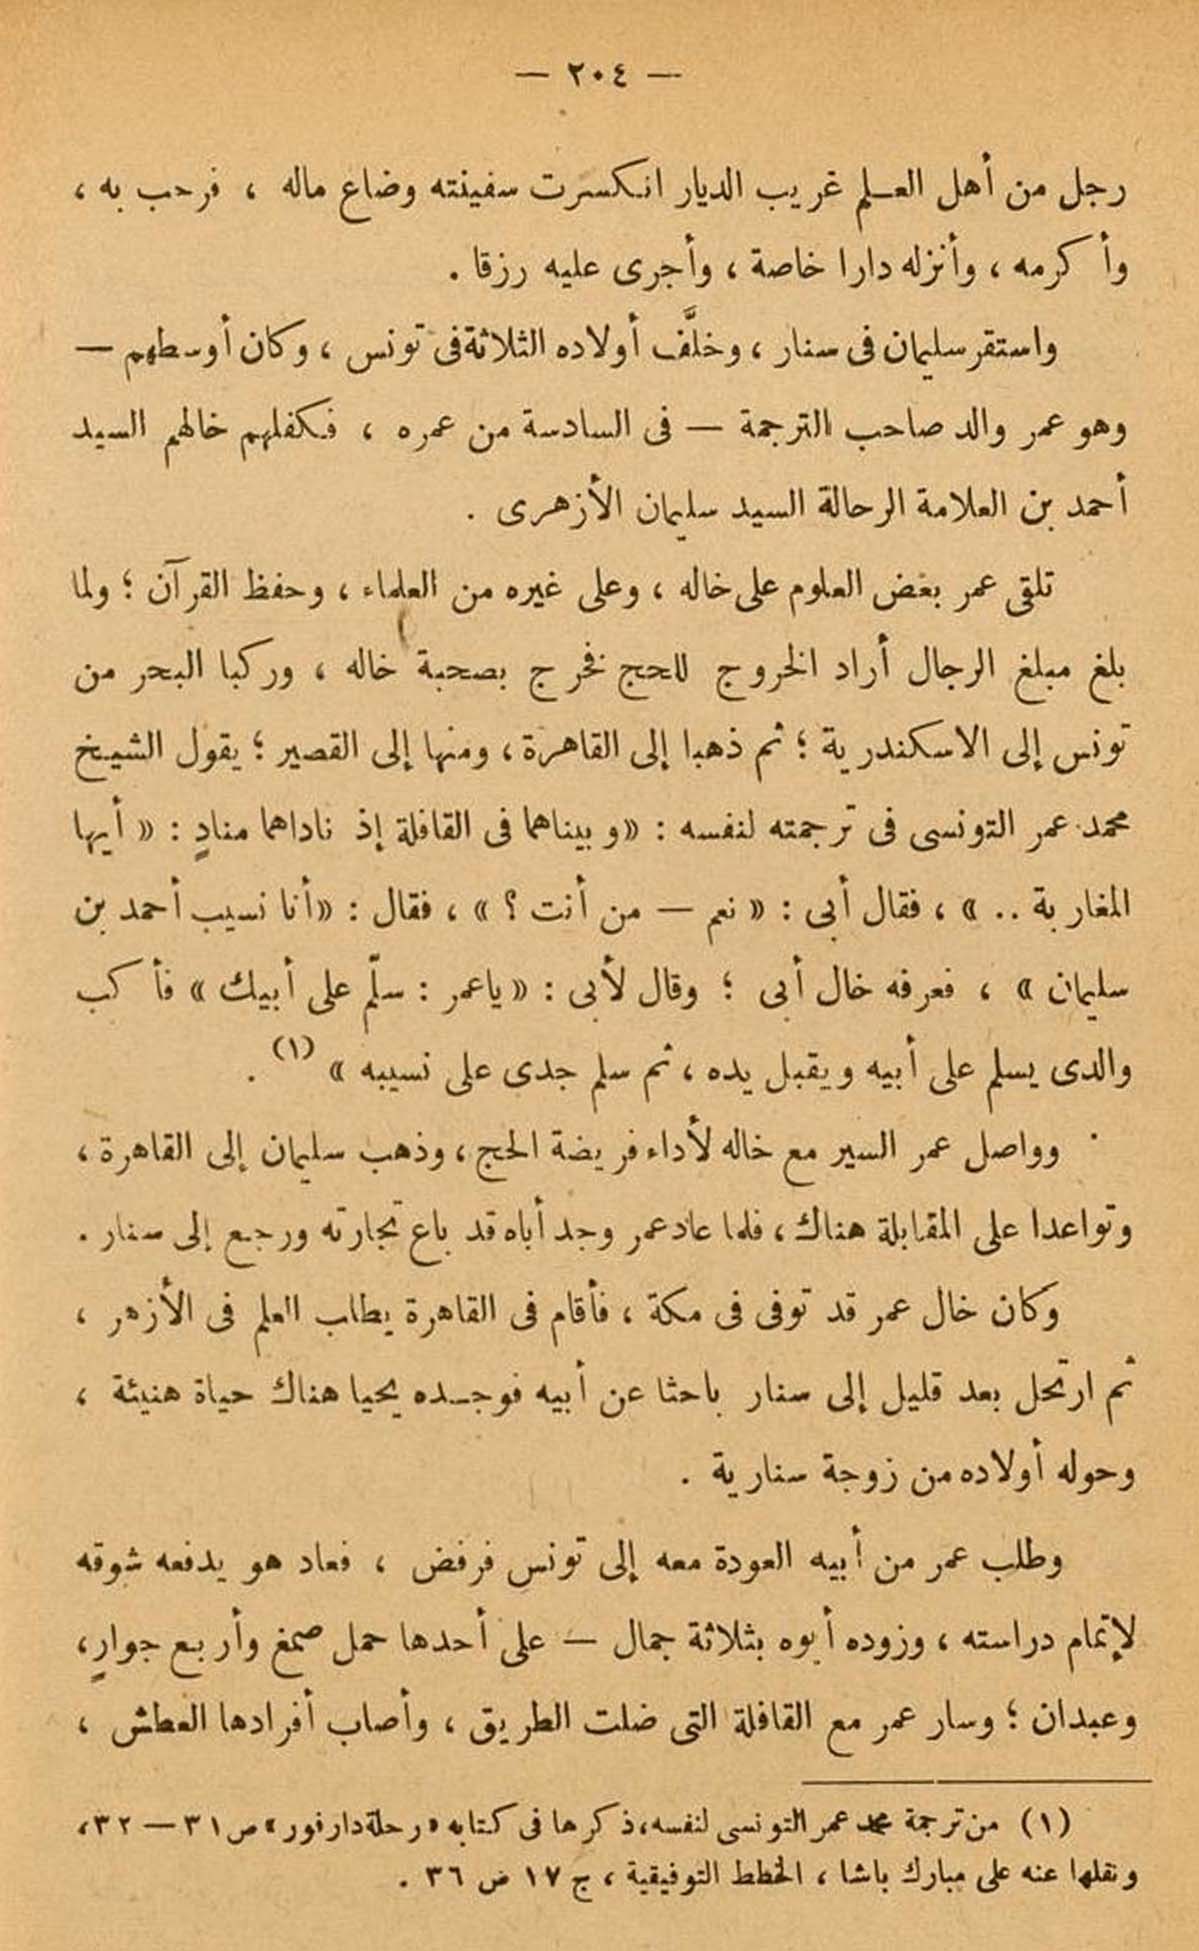 — ٢٠٤ —
رجل من أهل العلم غريب الديار انكسرت سفينته وضاع ماله ، فرحب به ،
وأكرمه ، وأنزله دارا خاصة ، وأجرى عليه رزقا .
واستقر سليمان فى سنار ، وخلَّف أولاده الثلاثة فى تونس ، وكان أوسطهم —
وهو عمر والد صاحب الترجمة — فى السادسة من عمره ، فكفلهم خالهم السيد
أحمد بن العلامة الرحالة السيد سليمان الأزهرى .
تلقى عمر بعض العلوم على خاله ، وعلى غيره من العلماء ، وحفظ القرآن ؛ ولما
بلغ مبلغ الرجال أراد الخروج للحج فخرج بصحبة خاله ، وركبا البحر من
تونس إلى الاسكندرية ؛ ثم ذهبا إلى القاهرة ، ومنها إلى القصير ؛ يقول الشيخ
محمد عمر التونسى فى ترجمته لنفسه : « وبيناهما فى القافلة إذ ناداهما منادٍ : « أيها
المغاربة .. » ، فقال أبى : « نعم — من أنت ؟ » ، فقال : « أنا نسيب أحمد بن
سليمان » ، فعرفه خال أبى ؛ وقال لأبى : « ياعمر : سلّم على أبيك » فأكب
والدى يسلم على أبيه ويقبل يده ، ثم سلم جدى على نسيبه » (١) .
وواصل عمر السير مع خاله لأداء فريضة الحج ، وذهب سليمان إلى القاهرة ،
وتواعدا على المقابلة هناك ، فلما عاد عمر وجد أباه قد باع تجارته ورجع إلى سنار .
وكان خال عمر قد توفى فى مكة ، فأقام فى القاهرة يطلب العلم فى الأزهر ،
ثم ارتحل بعد قليل إلى سنار باحثا عن أبيه فوجده يحيا هناك حياة هنيئة ،
وحوله أولاده من زوجة سنارية .
وطلب عمر من أبيه العودة معه إلى تونس فرفض ، فعاد هو يدفعه شوقه
لإتمام دراسته ، وزوده أبوه بثلاثة جمال — على أحدها حمل صمغ وأربع جوارٍ ،
وعبدان ؛ وسار عمر مع القافلة التى ضلت الطريق ، وأصاب أفرادها العطش ،
(١) من ترجمة محمد عمر التونسى لنفسه، ذكرها فى كتابه « رحلة دارفور » ص ٣١ — ٣٢ ،
ونقلها عنه على مبارك باشا ، الخطط التوفيقية ، ج ١٧ ص ٣٦ .